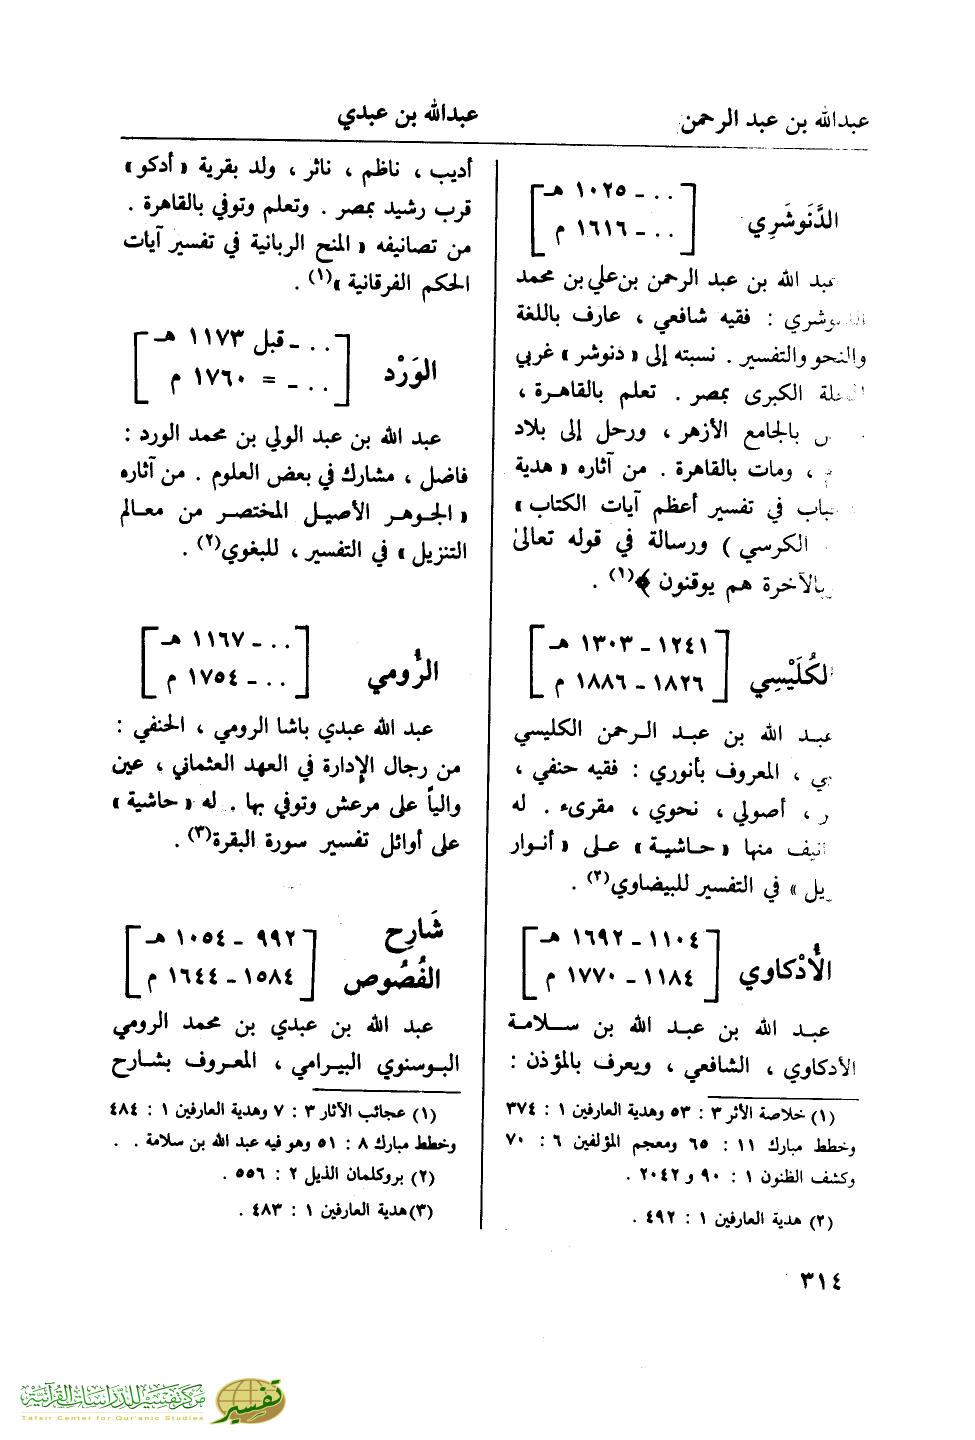 عبدالله بن عبد الرحمن
عبدالله بن عبدي
الدَّنَوشَري
. . ـ ١٠٢٥ هـ
. . ـ ١٦١٦ م
عبد الله بن عبد الرحمن بن علي بن محمد
الدنوشري : فقيه شافعي ، عارف باللغة
والنحو والتفسير . نسبته إلى « دنوشر » غربي
المحلة الكبرى بمصر . تعلم بالقاهرة ،
بالجامع الأزهر ، ورحل إلى بلاد
، ومات بالقاهرة . من آثاره « هدية
في تفسير أعظم آيات الكتاب »
الكرسي ) ورسالة في قوله تعالىٰ
بالآخرة هم يوقنون ﴾(١) .
الكُلَيْسِي
١٢٤١ ـ ١٣٠٣ هـ
١٨٢٦ ـ ١٨٨٦ م
عبد الله بن عبد الرحمن الكليسي
، المعروف بأنوري : فقيه حنفي ،
، أصولي ، نحوي ، مقرىء . له
منها « حاشية » على « أنوار
» في التفسير للبيضاوي(٢) .
الأُدْكاوي
١١٠٤ ـ ١٦٩٢ هـ
١١٨٤ ـ ١٧٧٠ م
عبد الله بن عبد الله بن سلامة
الأدكاوي ، الشافعي ، ويعرف بالمؤذن :
(١) خلاصة الأثر ٣ : ٥٣ وهدية العارفين ١ : ٣٧٤
وخطط مبارك ١١ : ٦٥ ومعجم المؤلفين ٦ : ٧٠
وكشف الظنون ١ : ٩٠ و ٢٠٤٢ .
(٢) هدية العارفين ١ : ٤٩٢ .
أديب ، ناظم ، ناثر ، ولد بقرية « أدكو »
قرب رشيد بمصر . وتعلم وتوفي بالقاهرة .
من تصانيفه « المنح الربانية في تفسير آيات
الحكم الفرقانية »(١) .
الوَرْد
. . ـ قبل ١١٧٣ هـ
. . ـ = ١٧٦٠ م
عبد الله بن عبد الولي بن محمد الورد :
فاضل ، مشارك في بعض العلوم . من آثاره
« الجوهر الأصيل المختصر من معالم
التنزيل » في التفسير ، للبغوي(٢) .
الرُّومي
. . ـ ١١٦٧ هـ
. . ـ ١٧٥٤ م
عبد الله عبدي باشا الرومي ، الحنفي :
من رجال الإدارة في العهد العثماني ، عين
والياً على مرعش وتوفي بها . له « حاشية »
على أوائل تفسير سورة البقرة(٣) .
شَارِح
الفُصُوص
٩٩٢ ـ ١٠٥٤ هـ
١٥٨٤ ـ ١٦٤٤ م
عبد الله بن عبدي بن محمد الرومي
البوسنوي البيرامي ، المعروف بشارح
(١) عجائب الآثار ٣ : ٧ وهدية العارفين ١ : ٤٨٤
وخطط مبارك ٨ : ٥١ وهو فيه عبد الله بن سلامة . .
(٢) بروكلمان الذيل ٢ : ٥٥٦ .
(٣) هدية العارفين ١ : ٤٨٣ .
٣١٤
مركز تفسير للدراسات القرآنية
Tafsir Center for Qur'anic Studies
تفسير